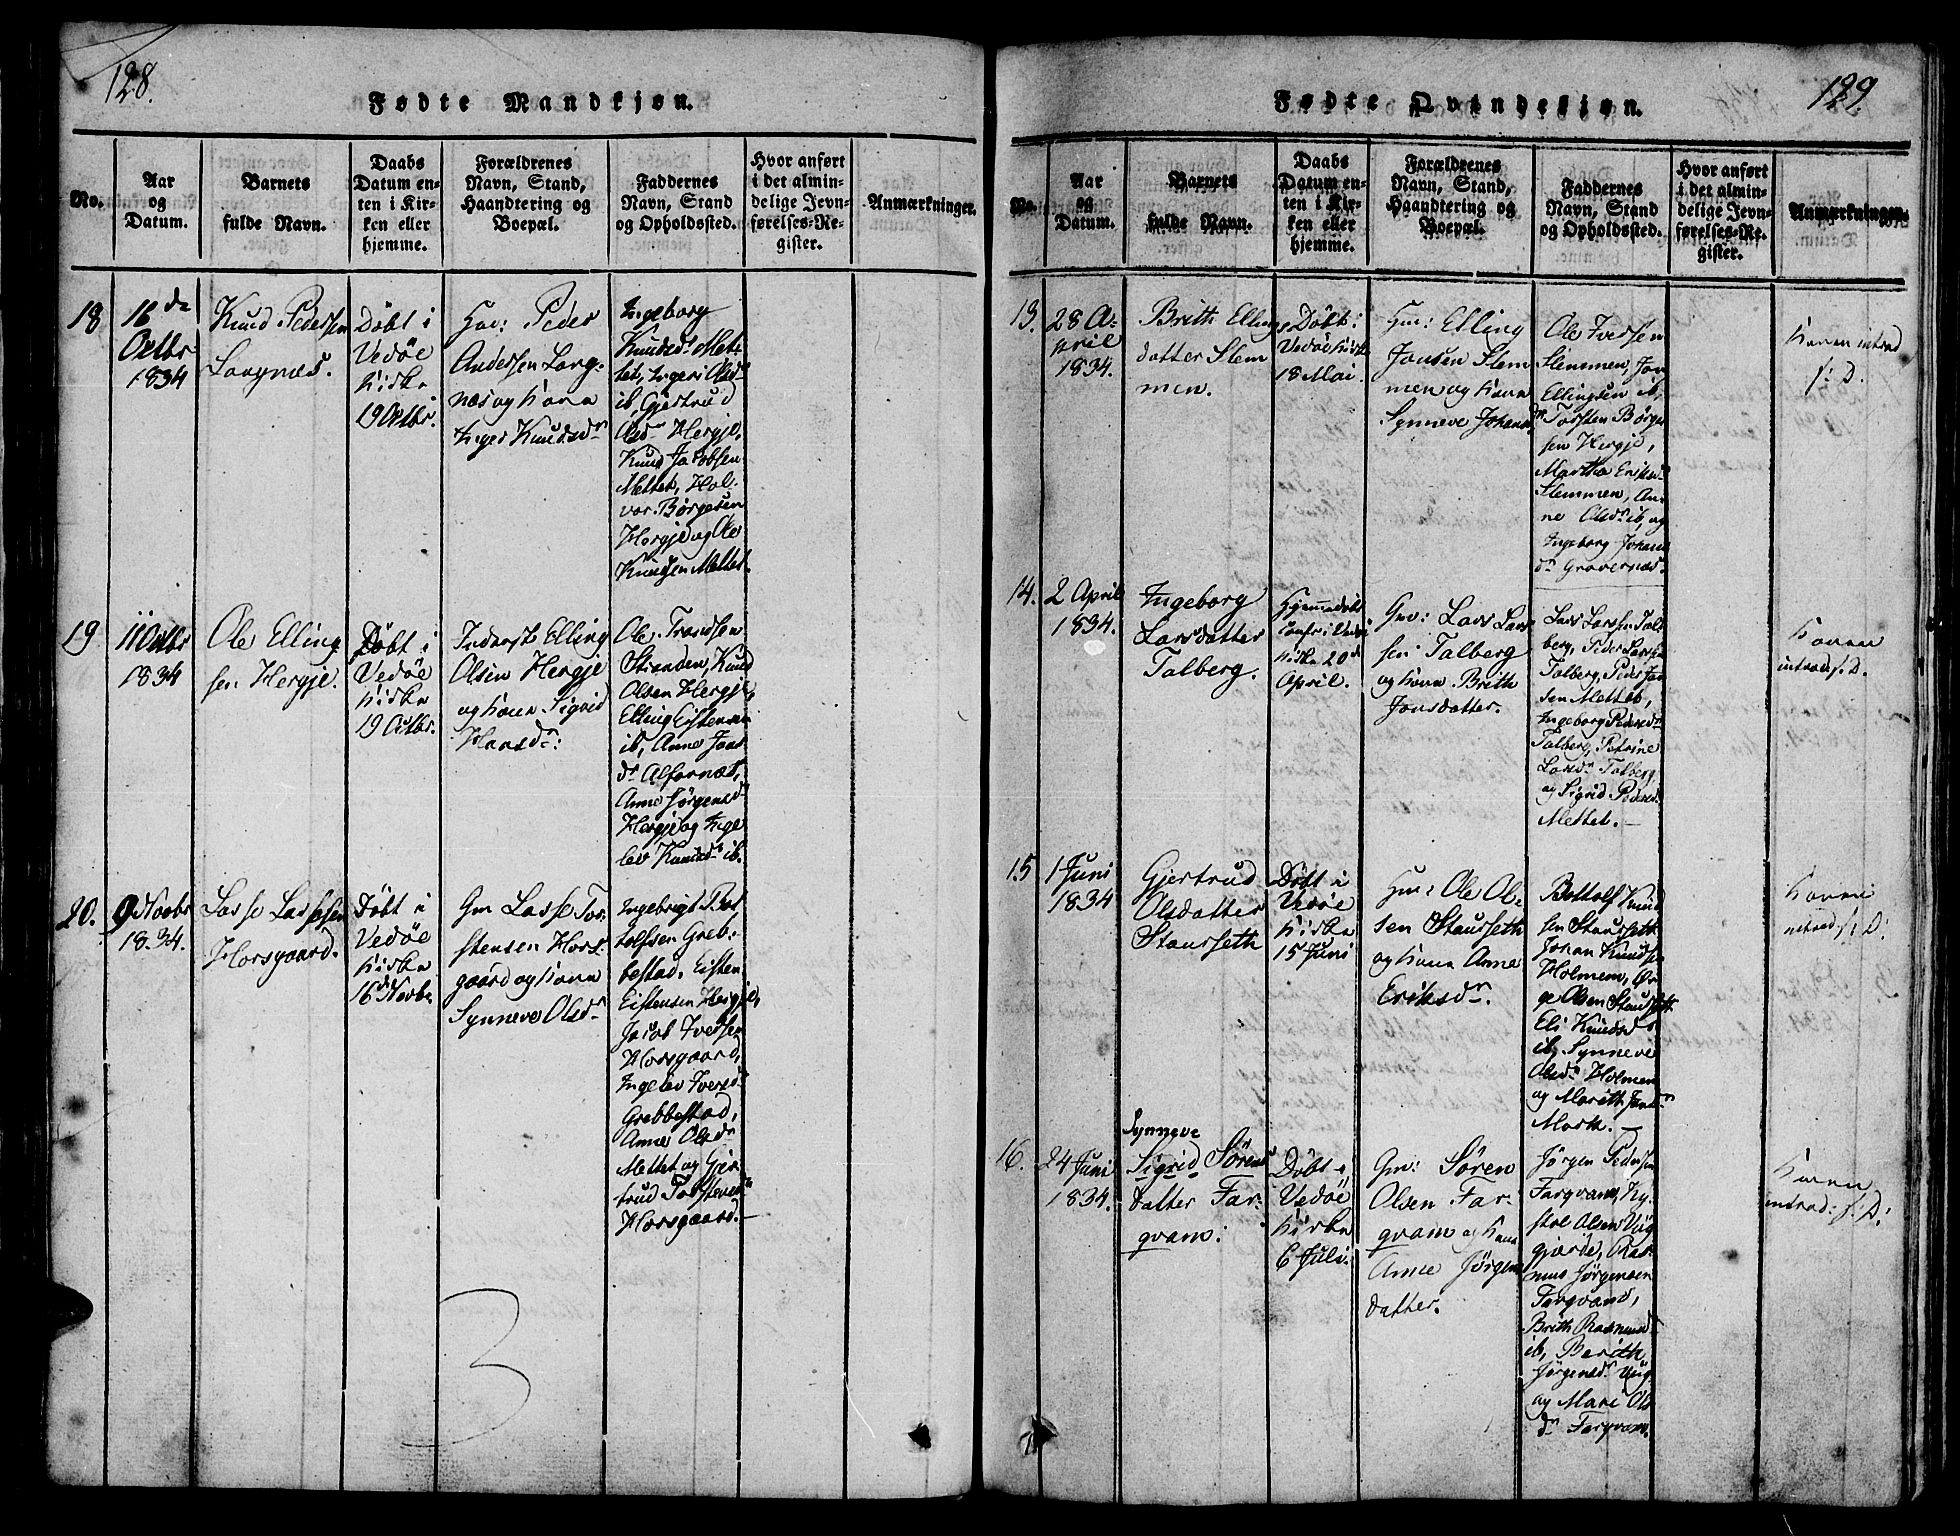 128.
Fødte Mandkjøn.
No.
Aar
og
Datum.
Barnets
fulde Navn.
Daabs
Datum en-
ten i Kir-
ken eller
hjemme.
Forældrenes
Navn, Stand,
Haandtering og
Boepæl.
Faddernes
Navn, Stand
og Opholdssted.
Hvor anført
i det almin-
delige Jevn-
førelses-Re-
gister.
Anmærkninger.
18
16de
Octbr
1834
Knud Pedersen
Langnæs.
Döbt i
Vedöe
Kirke
19 Octbr.
Gm: Peder
Andersen Lang-
næs og Kone
Inger Knudsdr
Ingeborg
Knudsdr Met-
tet, Ingeri Olsdr
ib, Gjertrud
Olsdr Hergje,
Knud Jacobsen
Mettet, Hal-
vor Börgesen
Hergje og Ole
Knudsen Mettet.
19
11 Octbr
1834
Ole Elling
sen Hergje.
Döbt i
Vedöe
Kirke
19 Octbr.
Inderst Elling
Olsen Hergje
og Kone Sigrid
Hansdr:
Ole Trondsen
Stranden, Knud
Olsen Hergje,
Elling Eistensen
ib, Anne Jons
dr Alfarnæs,
Anne Jörgensdr
Hergje og Inge
lev Knudsdr ib.
20.
9 Novbr
1834.
Lasse Lassesen
Horsgaard.
Döbt i
Vedöe
Kirke
16 Novbr
Gm Lasse Tor-
stensen Hors-
gaard og Kone
Synneve Olsdr
Ingebrigt Bot
tolfsen Greb-
bestad, Eisten
Eistensen Hergje,
Jacob Iversen
Horsgaard,
Ingelev Iversdr
Grebbestad,
Anne Olsdr
Mettet og Gjer
trud Torstensdr
Horsgaard.
3
129.
Fødte Qvindekjøn.
No.
Aar
og
Datum.
Barnets
fulde Navn.
Daabs
Datum en-
ten i Kir-
ken eller
hjemme.
Forældrenes
Navn, Stand,
Haandtering og
Boepæl.
Faddernes
Navn, Stand
og Opholdssted.
Hvor anført
i det almin-
delige Jevn-
førelses-Re-
gister.
Anmærkninger.
13.
28 A-
pril
1834.
Brith Ellings
datter Slem
men.
Döbt i
Vedöe Kirke
18 Mai.
Gm: Elling
Jonsen Slem
men og Kone
Synneve Johansdr
Ole Iversen
Slemmen, Jon
Ellingsen ib,
Torsten Börge
sen Hergje,
Martha Eriksdr
Slemmen, An-
ne Olsdr ib, og
Ingeborg Johans
dr Grovernæs.
Konen introd
f: D.
14.
2 April
1834.
Ingeborg
Larsdatter
Talberg.
Hjemmedöbt
confr: i Vedöe
Kirke 20de
April.
Gm: Lars Lars
sen Talberg
og Kone Brith
Jonsdatter.
Lars Larssen Tal
berg, Peder Larssen
Talberg, Peder Jon
sen Mettet,
Ingeborg Pedersdr
Talberg, Petrine
Larsdr Talberg,
og Sigrid Pedersdr
Mettet.
Konen
introd f: D.
15
1 Juni
1834
Gjertrud
Olsdatter
Staurseth
Döbt i
Vedöe
Kirke
15 Juni
Gm: Ole Ol-
sen Staurseth
og Kone Anne
Eriksdr.
Bottolf Knud
sen Staurseth
Johan Knudsen
Holmem, Ør
ge Olsen Staurseth
Eli Knudsdr
ib, Synneve
Olsdr Holmem
og Marith Jonsdr
Mork.
Konen
introd f: D:
16.
24 Juni
1834.
Synneve
Sigrid Sörens
datter Far-
qvam:
Döbt i
Vedöe
Kirke
6 Juli.
Gm: Sören
Olsen Far-
qvam og Kone
Anne Jörgens
datter.
Jörgen Pedersen
Farqvam, Ky-
stol Olsen Vög
gjærde, Ras-
mus Jörgensen
Farqvam,
Brith Rasmusdr
ib, Berith
Jörgensdr Vög
og Mari Ols
dr Farqvam.
Konen
introd: f: D: